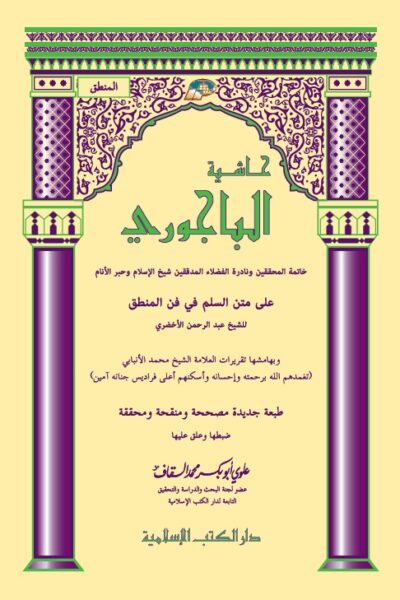 المنطق
حاشية
الباجوري
خاتمة المحققين ونادرة الفضلاء المدققين شيخ الإسلام وحبر الأنام
على متن السلم في فن المنطق
للشيخ عبد الرحمن الأخضري
وبهامشها تقريرات العلامة الشيخ محمد الأنبابي
(تغمدهم الله برحمته وإحسانه وأسكنهم أعلى فراديس جنانه آمين)
طبعة جديدة مصححة ومنقحة ومحققة
ضبطها وعلق عليها
علوي أبو بكر محمد السقاف
عضو لجنة البحث والدراسة والتحقيق
التابعة لدار الكتب الإسلامية
دار الكتب الإسلامية